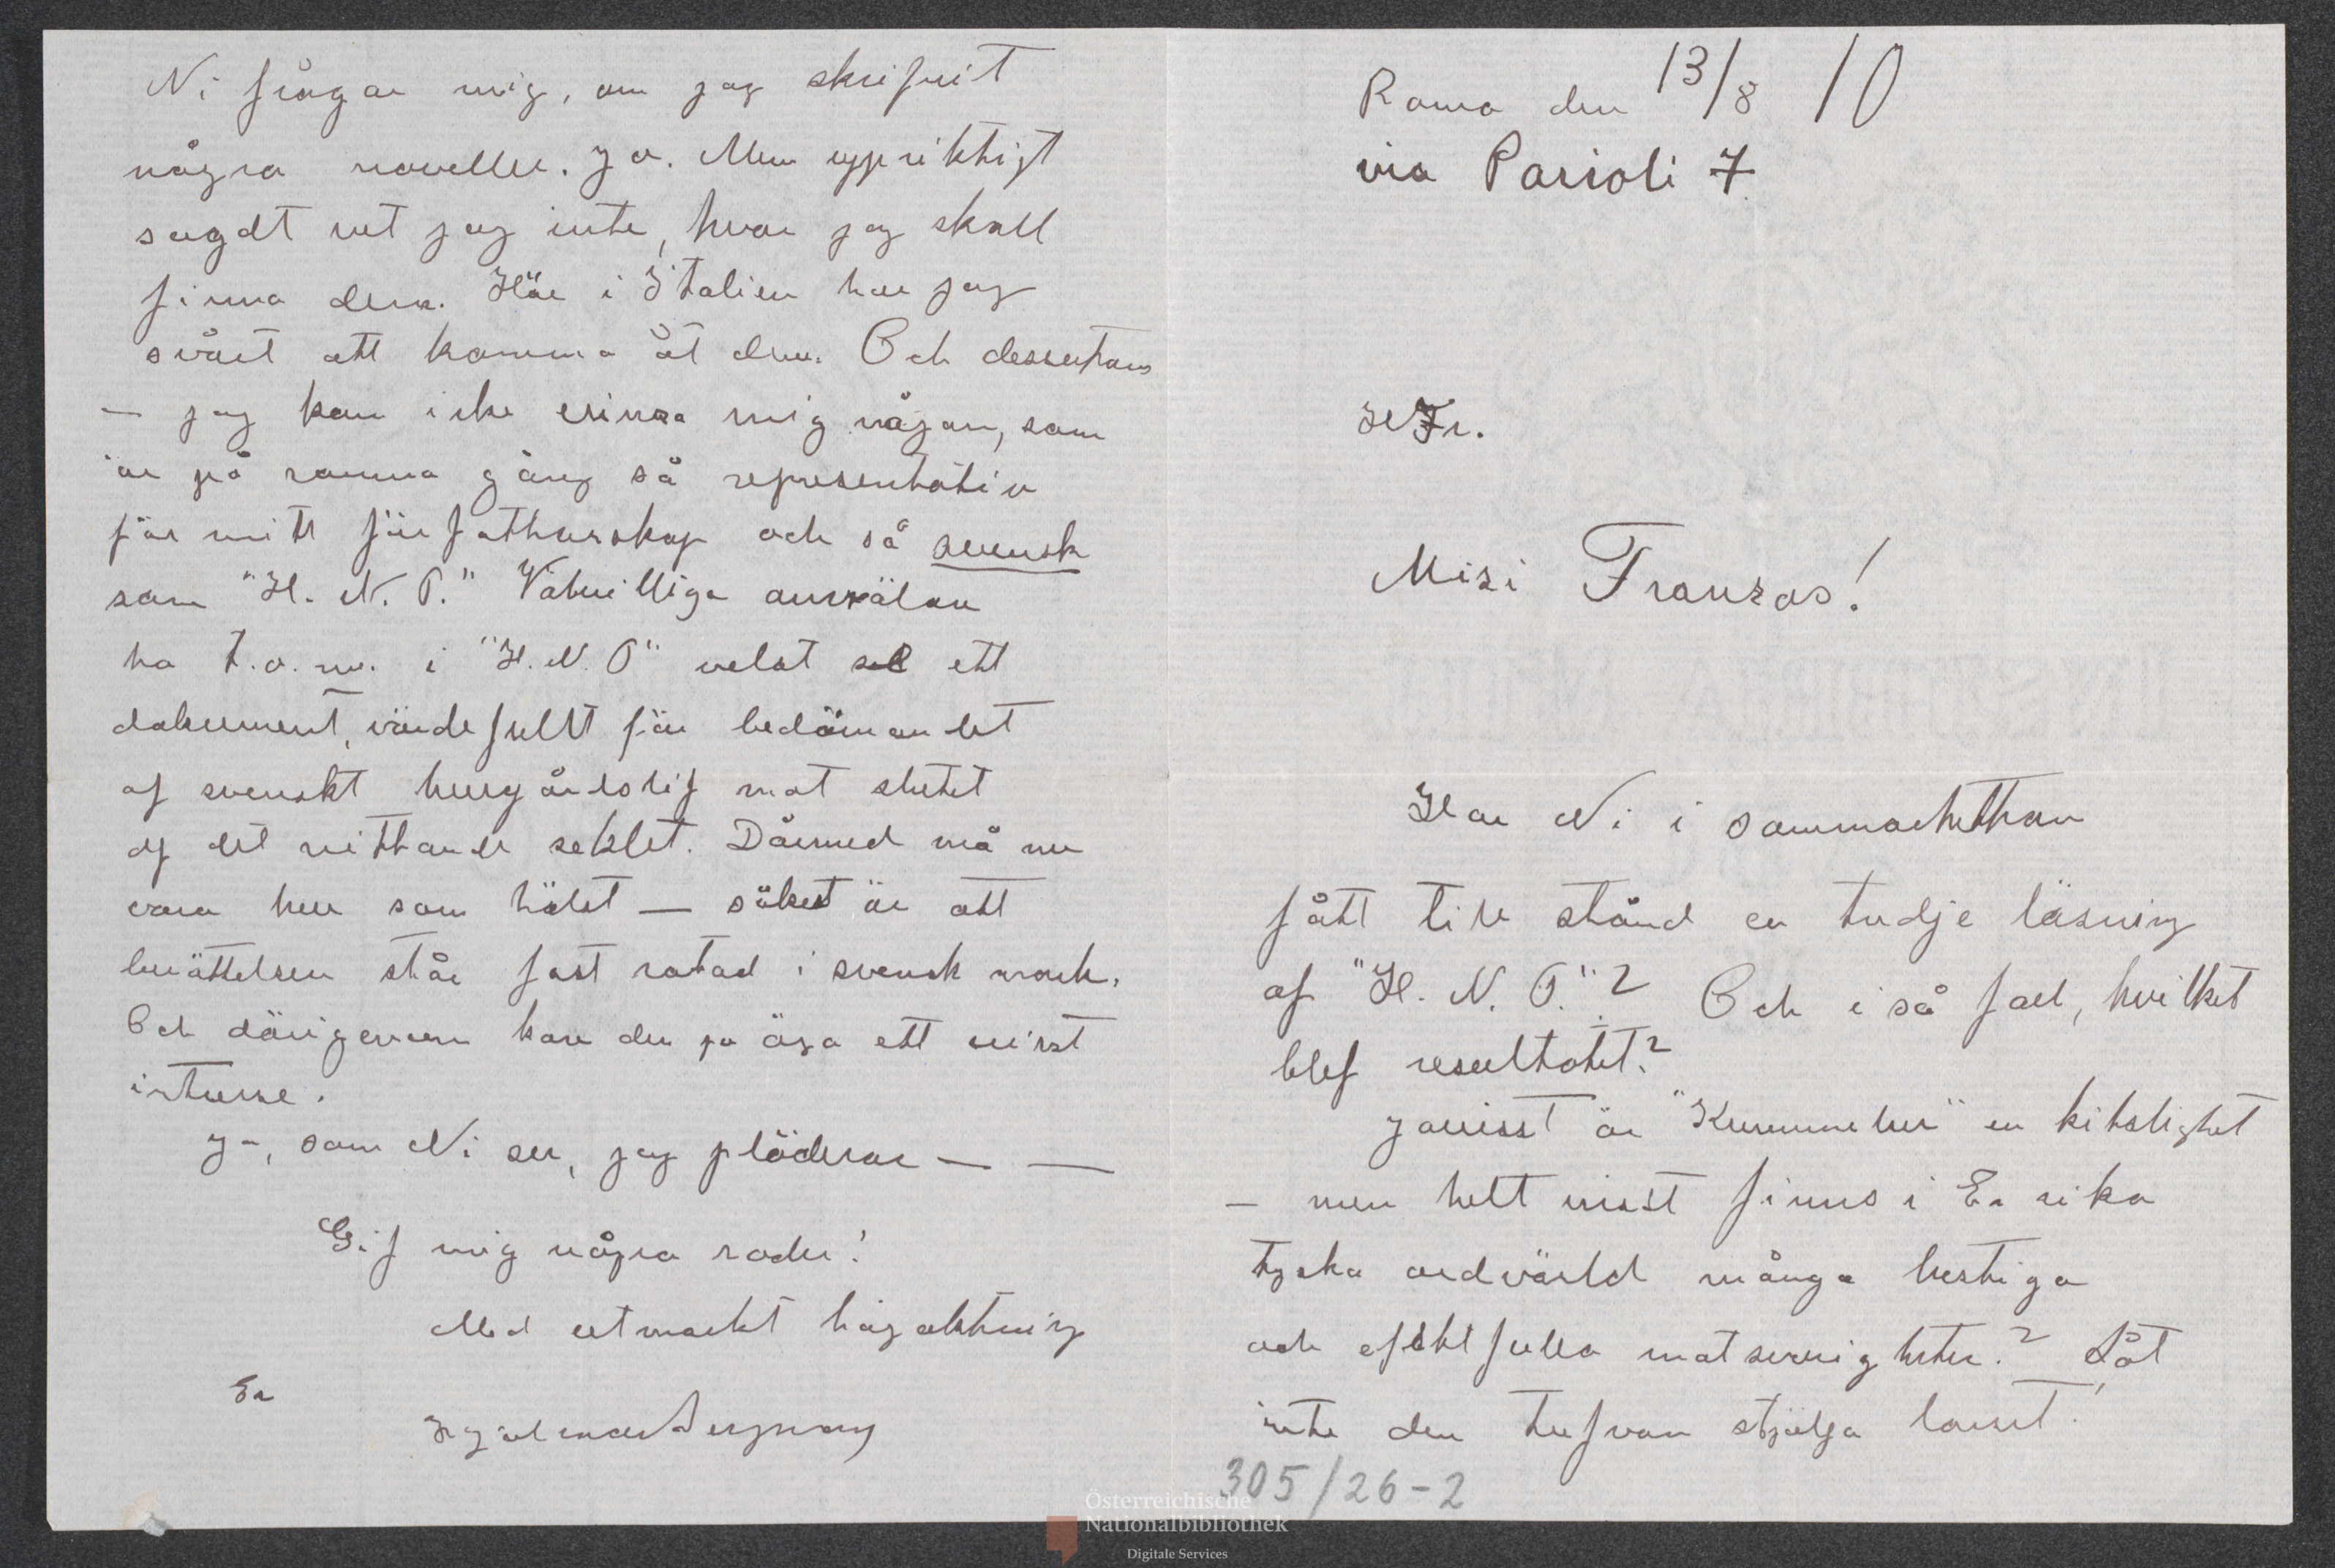 Roma den 13/8 10
via Parioli 7
Fr.
Misi Franzos!
Har Ni i sommarhettan
fått till stånd en tredje läsning
af "H. N. P."? Och i så fall, hvilket
blef resultatet?
Javisst är "Kummelur" en kitslighet
— men helt visst finns i Er rika
tyska ordvärld många lustiga
och effektfulla motsvarigheter? Låt
inte den tufvan stjälpa lasset!
305/26-2
Ni frågar mig, om jag skrifvit
några noveller. Ja. Men uppriktigt
sagdt vet jag inte, hvar jag skall
finna dem. Här i Italien har jag
svårt att komma åt dem. Och dessutom
— jag kan icke erinra mig någon, som
är på samma gång så representativ
för mitt författarskap och så svensk
som "H. N. P." Välvilliga anmälare
ha t.o.m. i "H. N. P" velat se ett
dokument, värdefullt för bedömandet
af svenskt herrgårdslif mot slutet
af det nittonde seklet. Därmed må nu
vara hur som hälst — säkert är att
berättelsen står fast rotad i svensk mark.
Och därigenom kan den ju äga ett visst
intresse.
Ja, som Ni ser, jag pläderar — —
Gif mig några rader!
Med utmärkt högaktning
Er
Hjalmar Bergman
Österreichische
Nationalbibliothek
Digitale Services